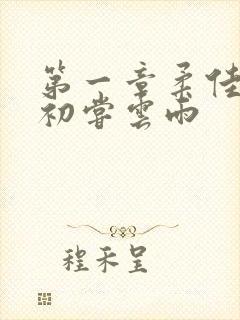 第一章柔佳
初嘗雲雨
程禾呈